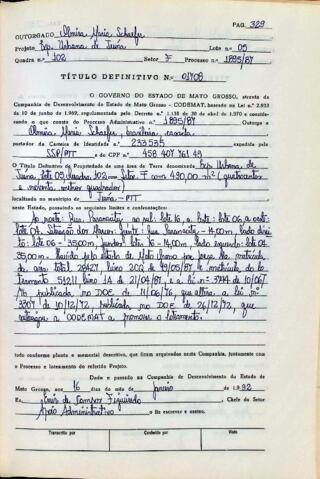 PAG. 329
OUTORGADO Olmira Maria Schaefer
Projeto Exp. Urbana de Juína Lote nº 05
Quadra n.º 102 Setor F Processo n.º 1895/87
TÍTULO DEFINITIVO N.º 01708
O GOVERNO DO ESTADO DE MATO GROSSO, através da
Companhia de Desenvolvimento do Estado de Mato Grosso - CODEMAT, baseado na Lei n.º 2.933
de 10 de junho de 1969, regulamentada pelo Decreto n.º 1.138 de 30 de abril de 1.970 e conside-
rando o que consta do Processo Administrativo n.º 1895/87 Outorga a
Olmira Maria Schaefer, brasileira, casada
portador da Carteira de Identidade n.º 233535 expedida pela
SSP/PTT e do CPF n.º 458 407 761 49
O Título Definitivo de Propriedade de uma área de Terra denominada Exp. Urbana de
Juína, lote 05 quadra 102 setor F com 490,00 m² (quatrocentos
e noventa metros quadrados)
localizada no município de Juína - PTT
Estado, possuindo os seguintes limites e confrontações:
ao norte: Rua Paranacity ao sul: lote 16, a leste: lote 06, a oeste:
lote 04. Situação dos Marcos: frente: Rua Paranacity - 14,00m, lado direi
to: lote 06 - 35,00m, fundos: lote 16 - 14,00m, lado esquerdo: lote 04
35,00m. Havido pelo Estado de Mato Grosso por força da matrícula
da área total 28427, livro 2CQ de 19/05/87
51211 livro 1A de 21/04/87 e a lei nº 3744 de 10/06/
76 publicada no DOE de 11/06/76, que altera a lei nº
3307 de 10/12/72, publicada no DOE de 26/12/72, que
autoriza a CODEMAT a promover o loteamento.
tudo conforme planta e memorial descritivo, que ficam arquivados nesta Companhia, juntamente com
o Processo e loteamento do referido Projeto.
Dado e passado na Companhia de Desenvolvimento do Estado de
Mato Grosso, aos 16 dias do mês de de 1992
Eu, Figueiredo Chefe do Setor
Apoio Administrativo o fiz escrever e assino.
Transcrito por Conferido por Visto